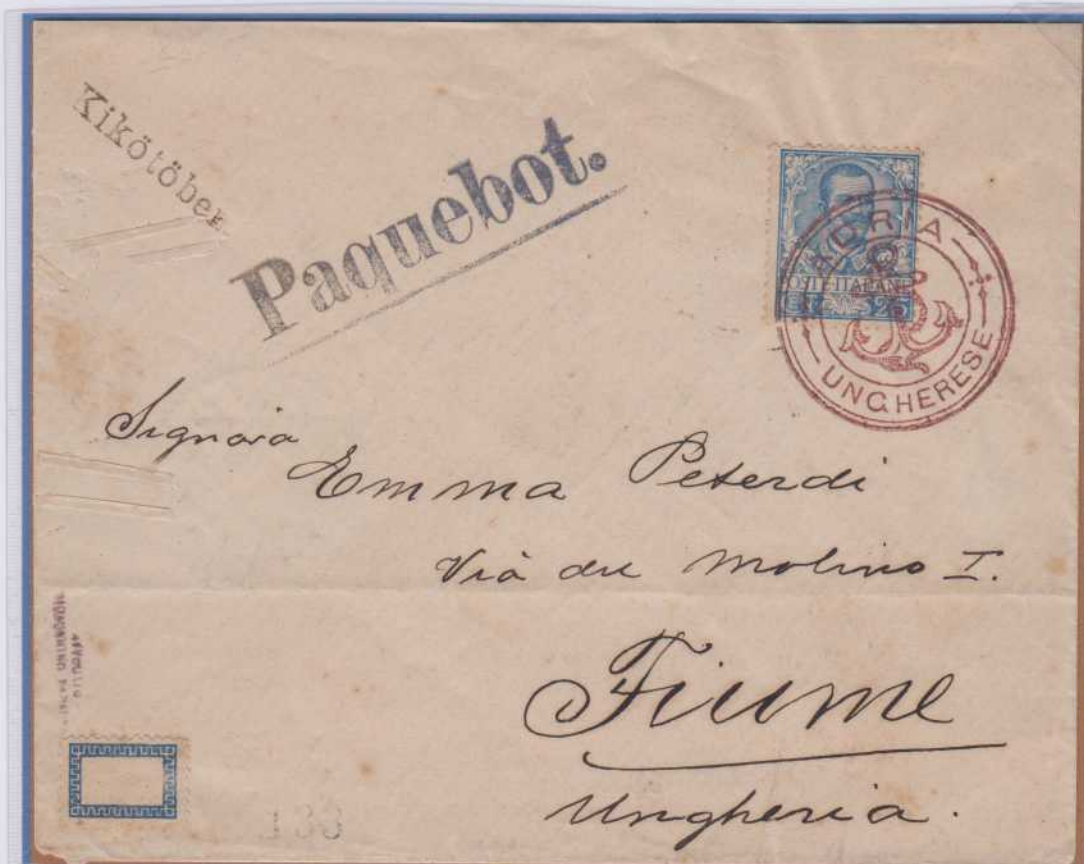 Kikötöben
Paquebot.
POSTE ITALIANE
25
ADRIA
UNGHERESE
Signora
Emma Peterdi
Via del Molino I.
Fiume
Ungheria.